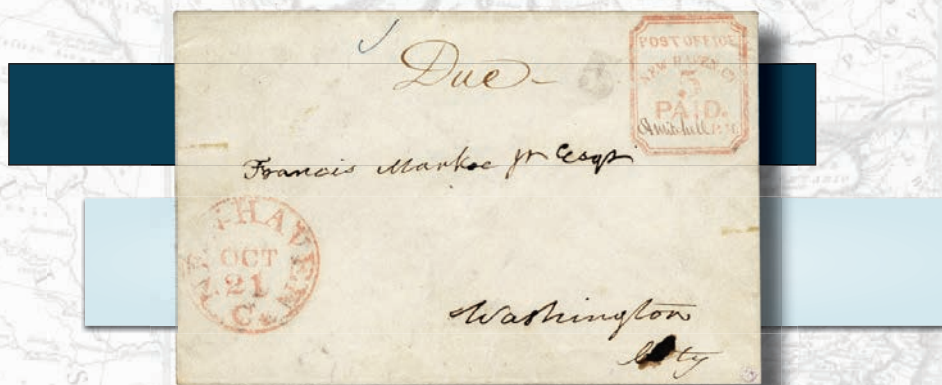 Due
POST OFFICE
NEW HAVEN CT.
5
PAID.
Francis Markoe Jr Esqr
NEW-HAVEN
OCT
21
Ct.
Washington
City